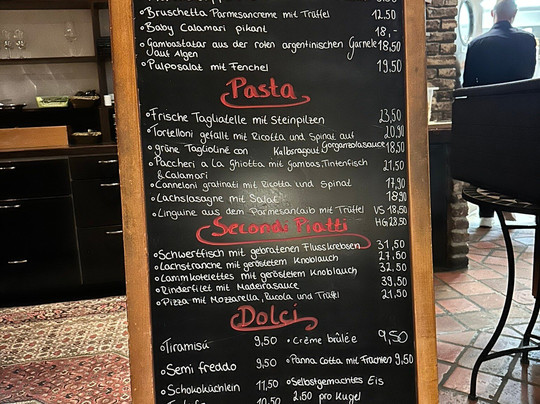 • Bruschetta Parmesancreme mit Trüffel 12,50
• Baby Calamari pikant 18,-
• Gambastatar aus der roten argentinischen Garnele 18,50
auf Algen
• Pulposalat mit Fenchel 19,50
Pasta
• Frische Tagliatelle mit Steinpilzen 23,50
• Tortelloni gefällt mit Ricotta und Spinat auf Gorgonzolasauce 20,90
• grüne Taglioline con Kalbsragout 18,50
• Paccheri a La Ghiotta mit Gambas, Tintenfisch 21,50
& Calamari
• Canneloni gratinati mit Ricotta und Spinat 17,90
• Lachslasagne mit Salat 18,90
• Linguine aus dem Parmesanlaib mit Trüffel VS 18,50
HG 28,50
Secondi Piatti
• Schwertfisch mit gebratenen Flusskrebsen 31,50
• Lachstranche mit geröstetem Knoblauch 27,50
• Lammkotelettes mit geröstetem Knoblauch 32,50
• Rinderfilet mit Madeirasauce 39,50
• Pizza mit Mozzarella, Rucola und Trüffel 21,50
Dolci
• Tiramisú 9,50
• Crème brûlée 9,50
• Semi freddo 9,50
• Panna Cotta mit Früchten 9,50
• Schokoküchlein 11,50
• Selbstgemachtes Eis
2,50 pro Kugel
10,50